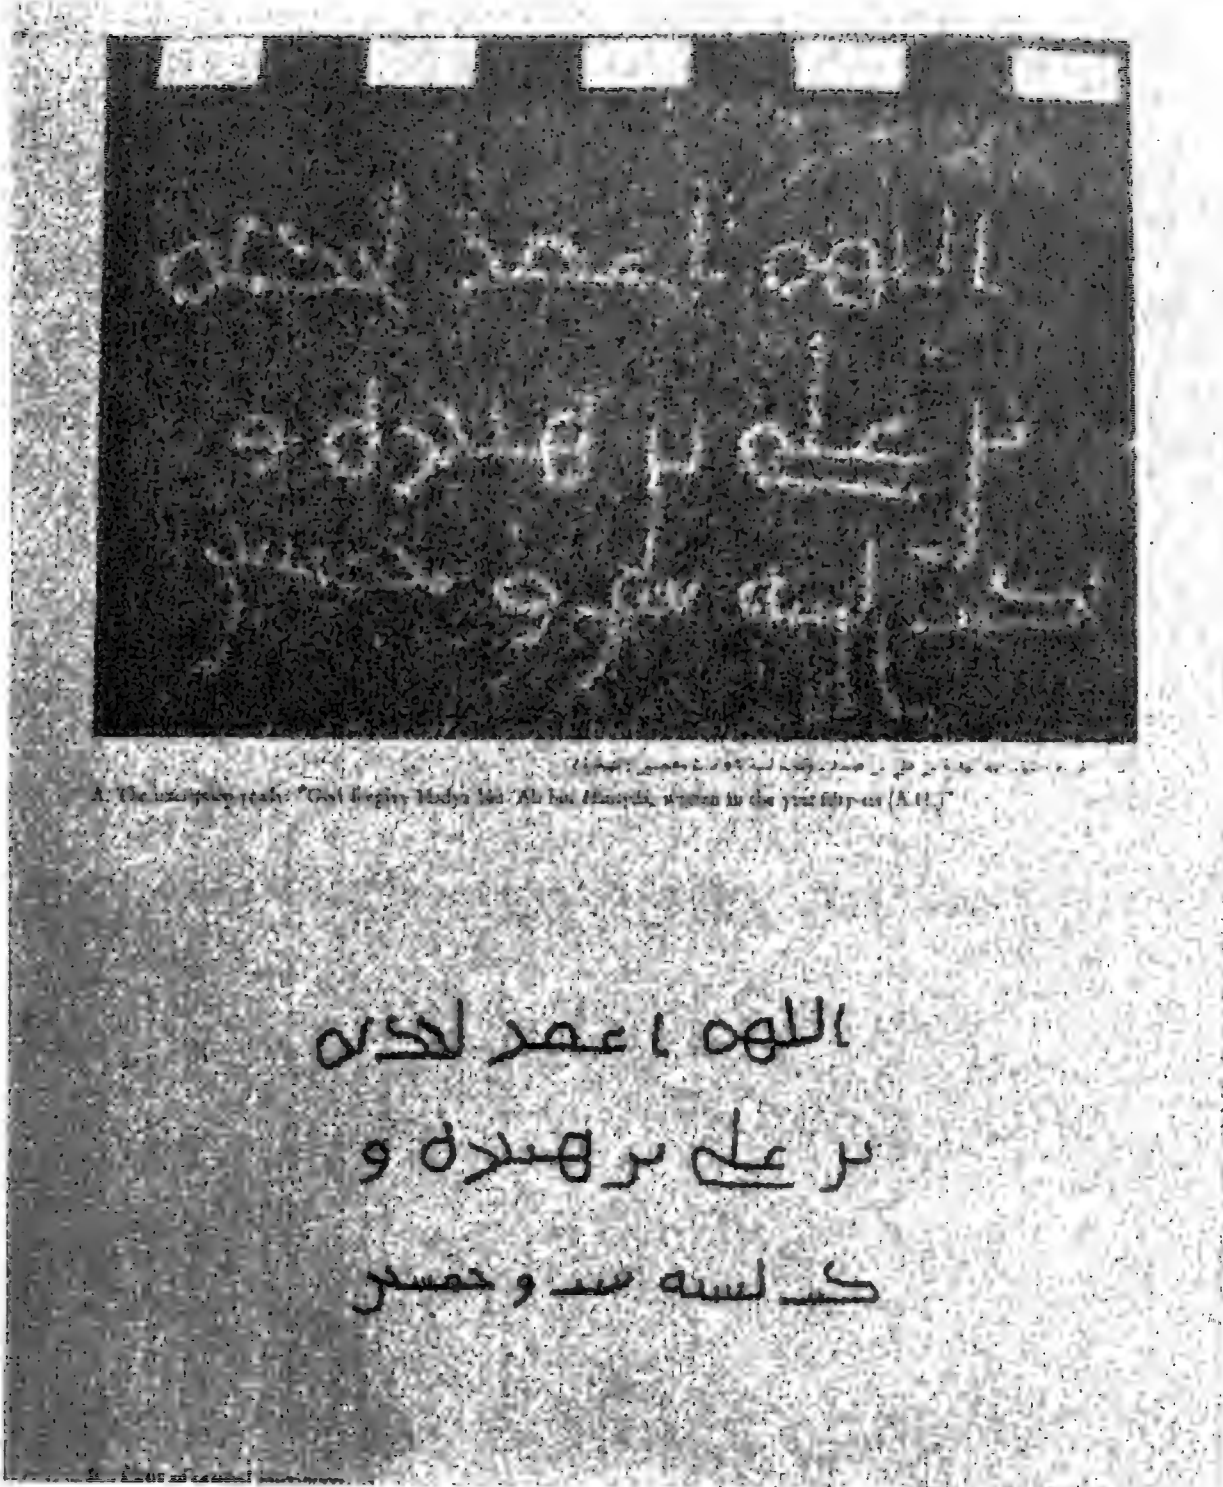 اللهم اغفر لحديه
بن علي بن هنيده و
كتب لسنه ست و خمسين
A. The inscription reads: "God forgive Hadya bin 'Ali bin written in the year fifty-six (A.H.)"
اللهم اغفر لحديه
بن علي بن هنيده و
كتب لسنه ست و خمسين